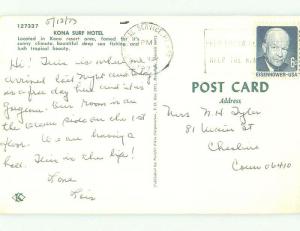 05/13/73
127337
KONA SURF HOTEL
Located in Kona resort area, famed for it's
sunny climate, bountiful deep sea fishing and
lush tropical beauty.
Hi! This is where we
arrived last night and today
is a free day here and it is
Gorgeous. Our room is on
the ocean side on the 1st
floor. We are having a
ball. This is the life!
Love
Lois
PM
POST CARD
Address
EISENHOWER·USA
6c
Miss N. H. Tyler
81 Main St
Cheshire
Conn 06410
K